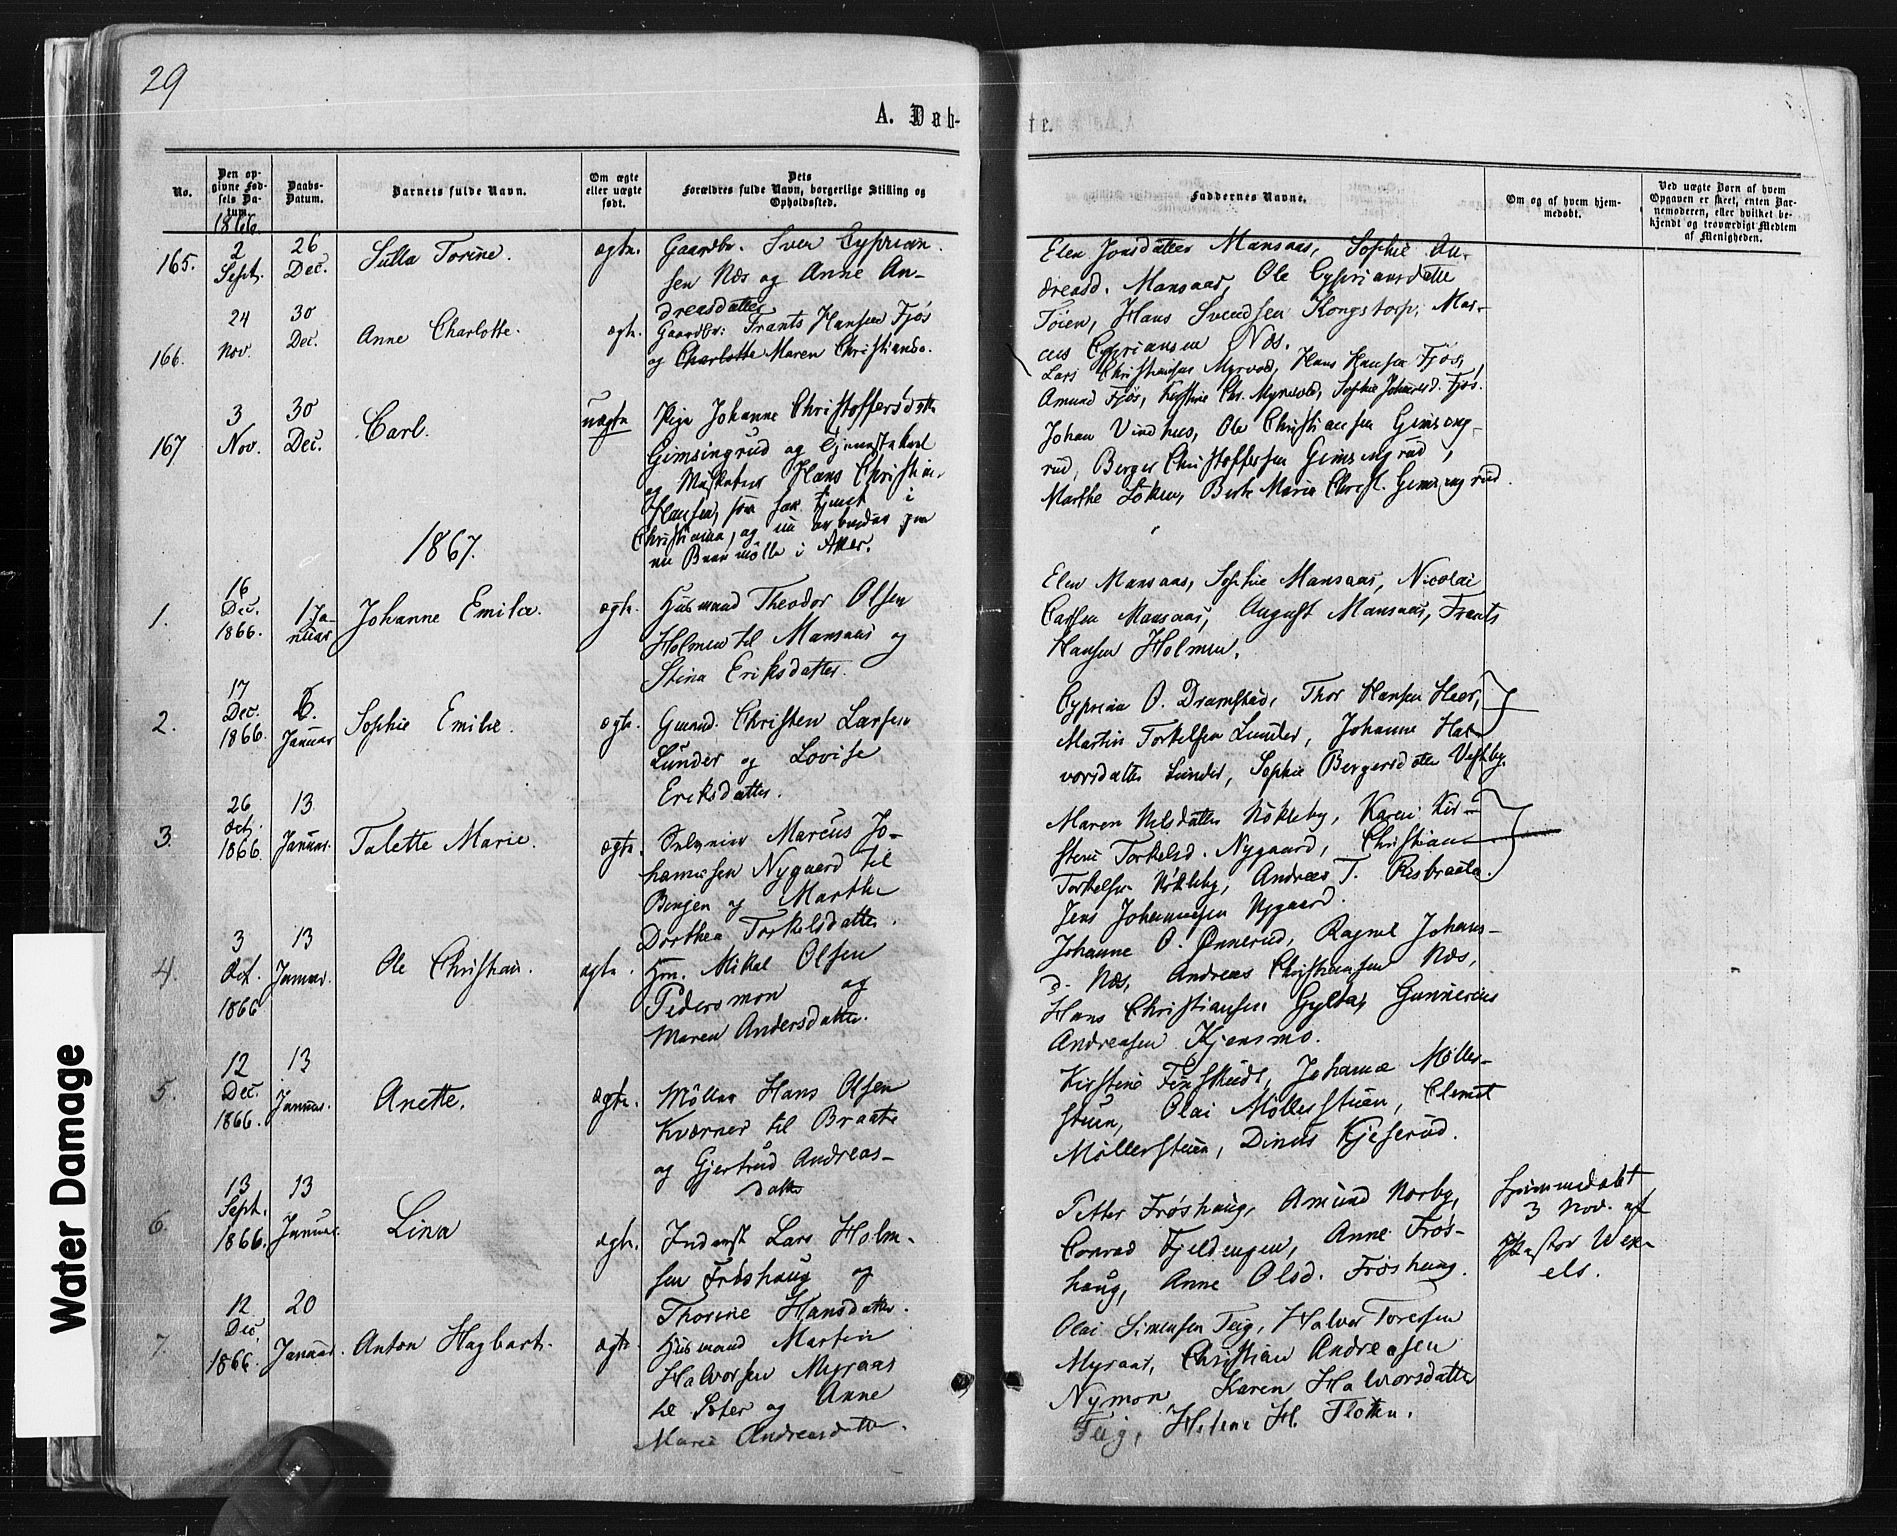 29
A. Døb-
te.
No.
Den op-
givne Fød-
sels Da-
tum.
Daabs-
Datum.
Barnets fulde Navn.
Om ægte
eller uægte
født.
Dets
Forældres fulde Navn, borgerlige Stilling og
Opholdssted.
Faddernes Navne.
Om og af hvem hjem-
medøbt.
Ved uægte Børn af hvem
Opgaven er skeet, enten Bar-
nemoderen, eller hvilket be-
kjendt og troværdigt Medlem
af Menigheden.
1866
165.
2
Sept.
26
Dec.
Julla Torine.
ægte.
Gaardbr. Sven Cyprian-
sen Næs og Anne An-
dreasdatter
Elen Jonsdatter Mansaas, Sophie An-
dreasd. Mansaas, Ole Cypriansdatte
Töien, Hans Svendsen Kongstorp, Mar-
cus Cypriansen Næs.
166.
24
Nov.
30
Dec.
Anne Charlotte.
ægte.
Gaardbr: Frants Hansen Fjös
og Charlotte Maren Christiansd.
Lars Christiansen Myrvod, Hans Hansen Fjös,
Amund Fjös, Kirstine Chr. Myrvold, Sophie Johannesd. Fjös.
167
3
Nov.
30
Dec.
Carl.
uægte
Pige Johanne Christoffersdatte
Gimsingrud og Tjenestekarl
og Hans Christian
Hansen, som har tjent i
Christiania, og nu arbeider paa
en mölle i Aker.
Johan Vindhus, Ole Christiansen Gimsing-
rud, Berger Christoffersen Gimsingrud,
Marthe Löken, Berte Marie Christ. Gimsingrud.
1867.
1.
16
Dec.
1866.
1 Ja-
nuar
Johanne Emilie.
ægte.
Husmand Theodor Olsen
Holmen til Mansaas og
Stina Eriksdatter.
Elen Mansaas, Sophie Mansaas, Nicolai
Carlsen Mansaas, August Mansaas, Frants
Hansen Holmen.
2.
17
Dec.
1866.
6.
Januar
Sophie Emilie.
ægte.
Gmand. Christen Larsen
Lunder og Lovise
Eriksdatter.
Cyprian O. Dramstad, Thor Hansen Heer,
Martin Torkelsen Lunder, Johanne Hal-
vorsdatter Lunder, Sophie Bergersdatter Vestby.
3.
26
Oct.
1866.
13
Januar.
Talette Marie.
ægte.
Marcus Jo-
hannesen Nygaard til
Bingen og Marthe
Dorthea Torkelsdatter.
Maren Nilsdatter Nökleby, Karen Kir-
stine Torkelsd. Nygaard, Christian
Torkelsen Nökleby, Andreas T. Risbraata.
Jens Johannesen Nygaard.
4.
3
Oct.
1866
13
Januar.
Ole Christian.
ægte.
Hm. Mikal Olsen
Pedersmon og
Maren Andersdatter.
Johanne O. Önnerud, Ragne Johans-
d. Næs, Andreas Christiansen Næs,
Hans Christiansen Gylta, Gunnerius
Andreasen Kjensmo.
5.
12
Dec.
1866.
13
Januar.
Anette.
ægte.
Möller Hans Olsen
Kværner til Braate
og Gjertrud Andreas-
datter
Kirstine Finskud, Johanne Möller-
stuen, Olai Möllerstuen, Clemet
Möllerstuen, Dinus Kjeserud.
6.
13
Sept.
1866.
13
Januar.
Lina
ægte.
Inderst Lars Holm-
sen Fröshaug og
Thorine Hansdatter.
Petter Fröshaug, Amund Norby,
Conrad Fjeldengen, Anne Frös-
haug, Anne Olsd. Fröshaug.
Hjemmedöbt
3 Nov. af
Pastor Wex-
els.
7.
12
Dec.
1866.
20
Januar.
Anton Hagbart.
ægte.
Husmand Martin
Halvorsen Myraas
til Sæter og Anne
Marie Andreasdatter.
Olai Simensen Teig, Halvor Toresen
Myraas, Christian Andreasen
Nymon Karen Halvorsdatter
Teig, Helene H. Floten.
Water Damage